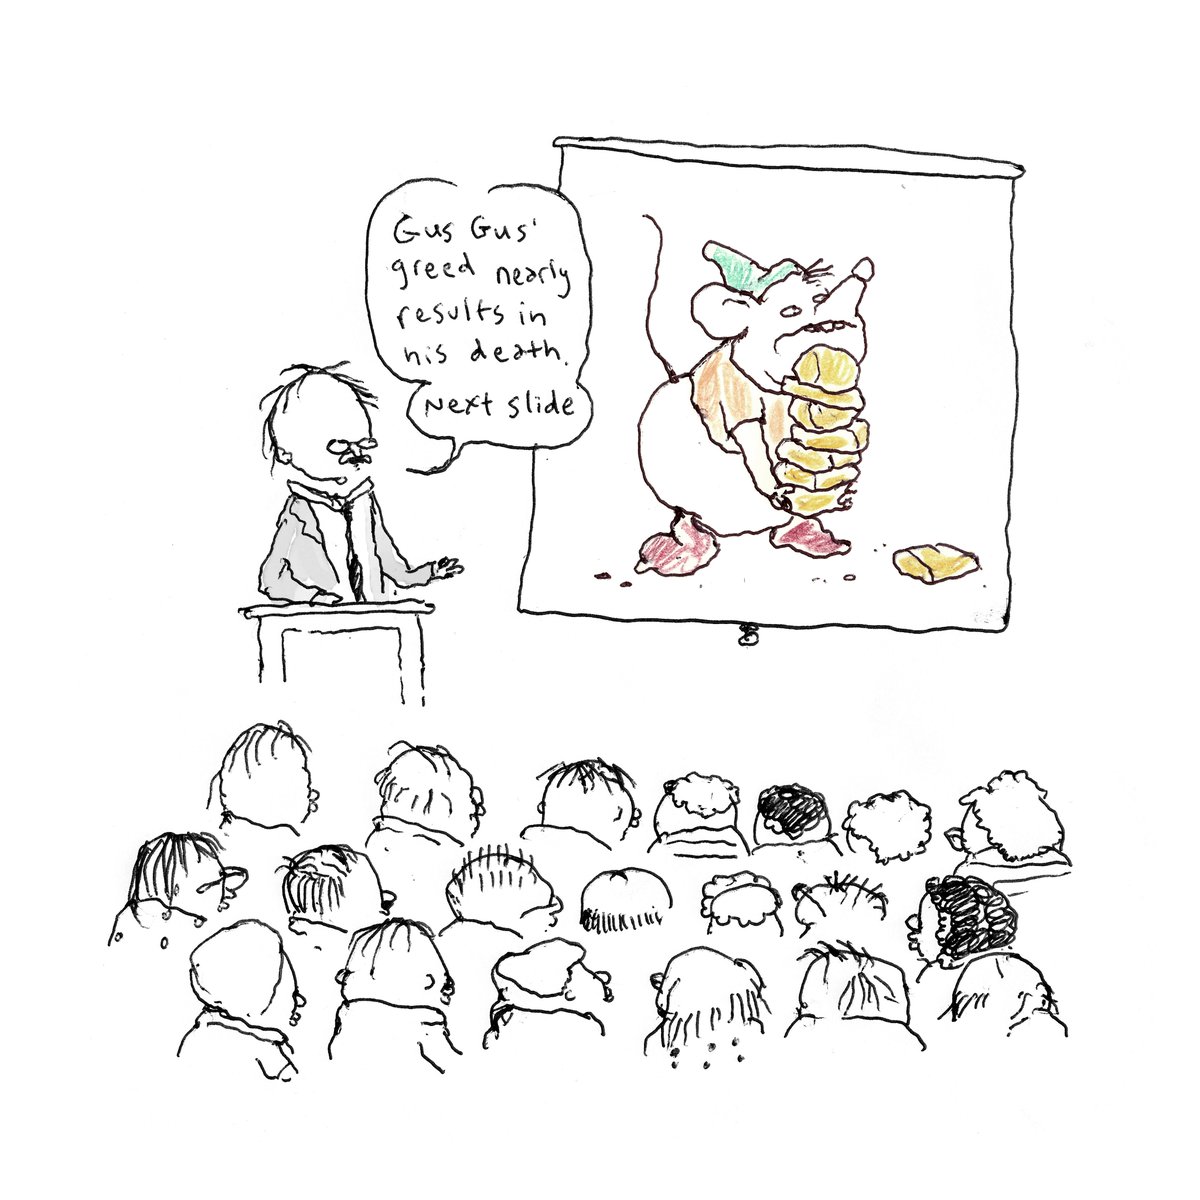 Gus Gus'
greed nearly
results in
his death.
Next slide